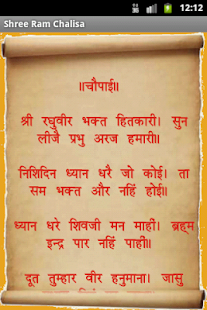 12:12
Shree Ram Chalisa
॥चौपाई॥
श्री रघुवीर भक्त हितकारी। सुन
लीजै प्रभु अरज हमारी॥
निशिदिन ध्यान धरै जो कोई। ता
सम भक्त और नहिं होई॥
ध्यान धरे शिवजी मन माहीं। ब्रह्म
इन्द्र पार नहिं पाहीं॥
दूत तुम्हार वीर हनुमाना। जासु